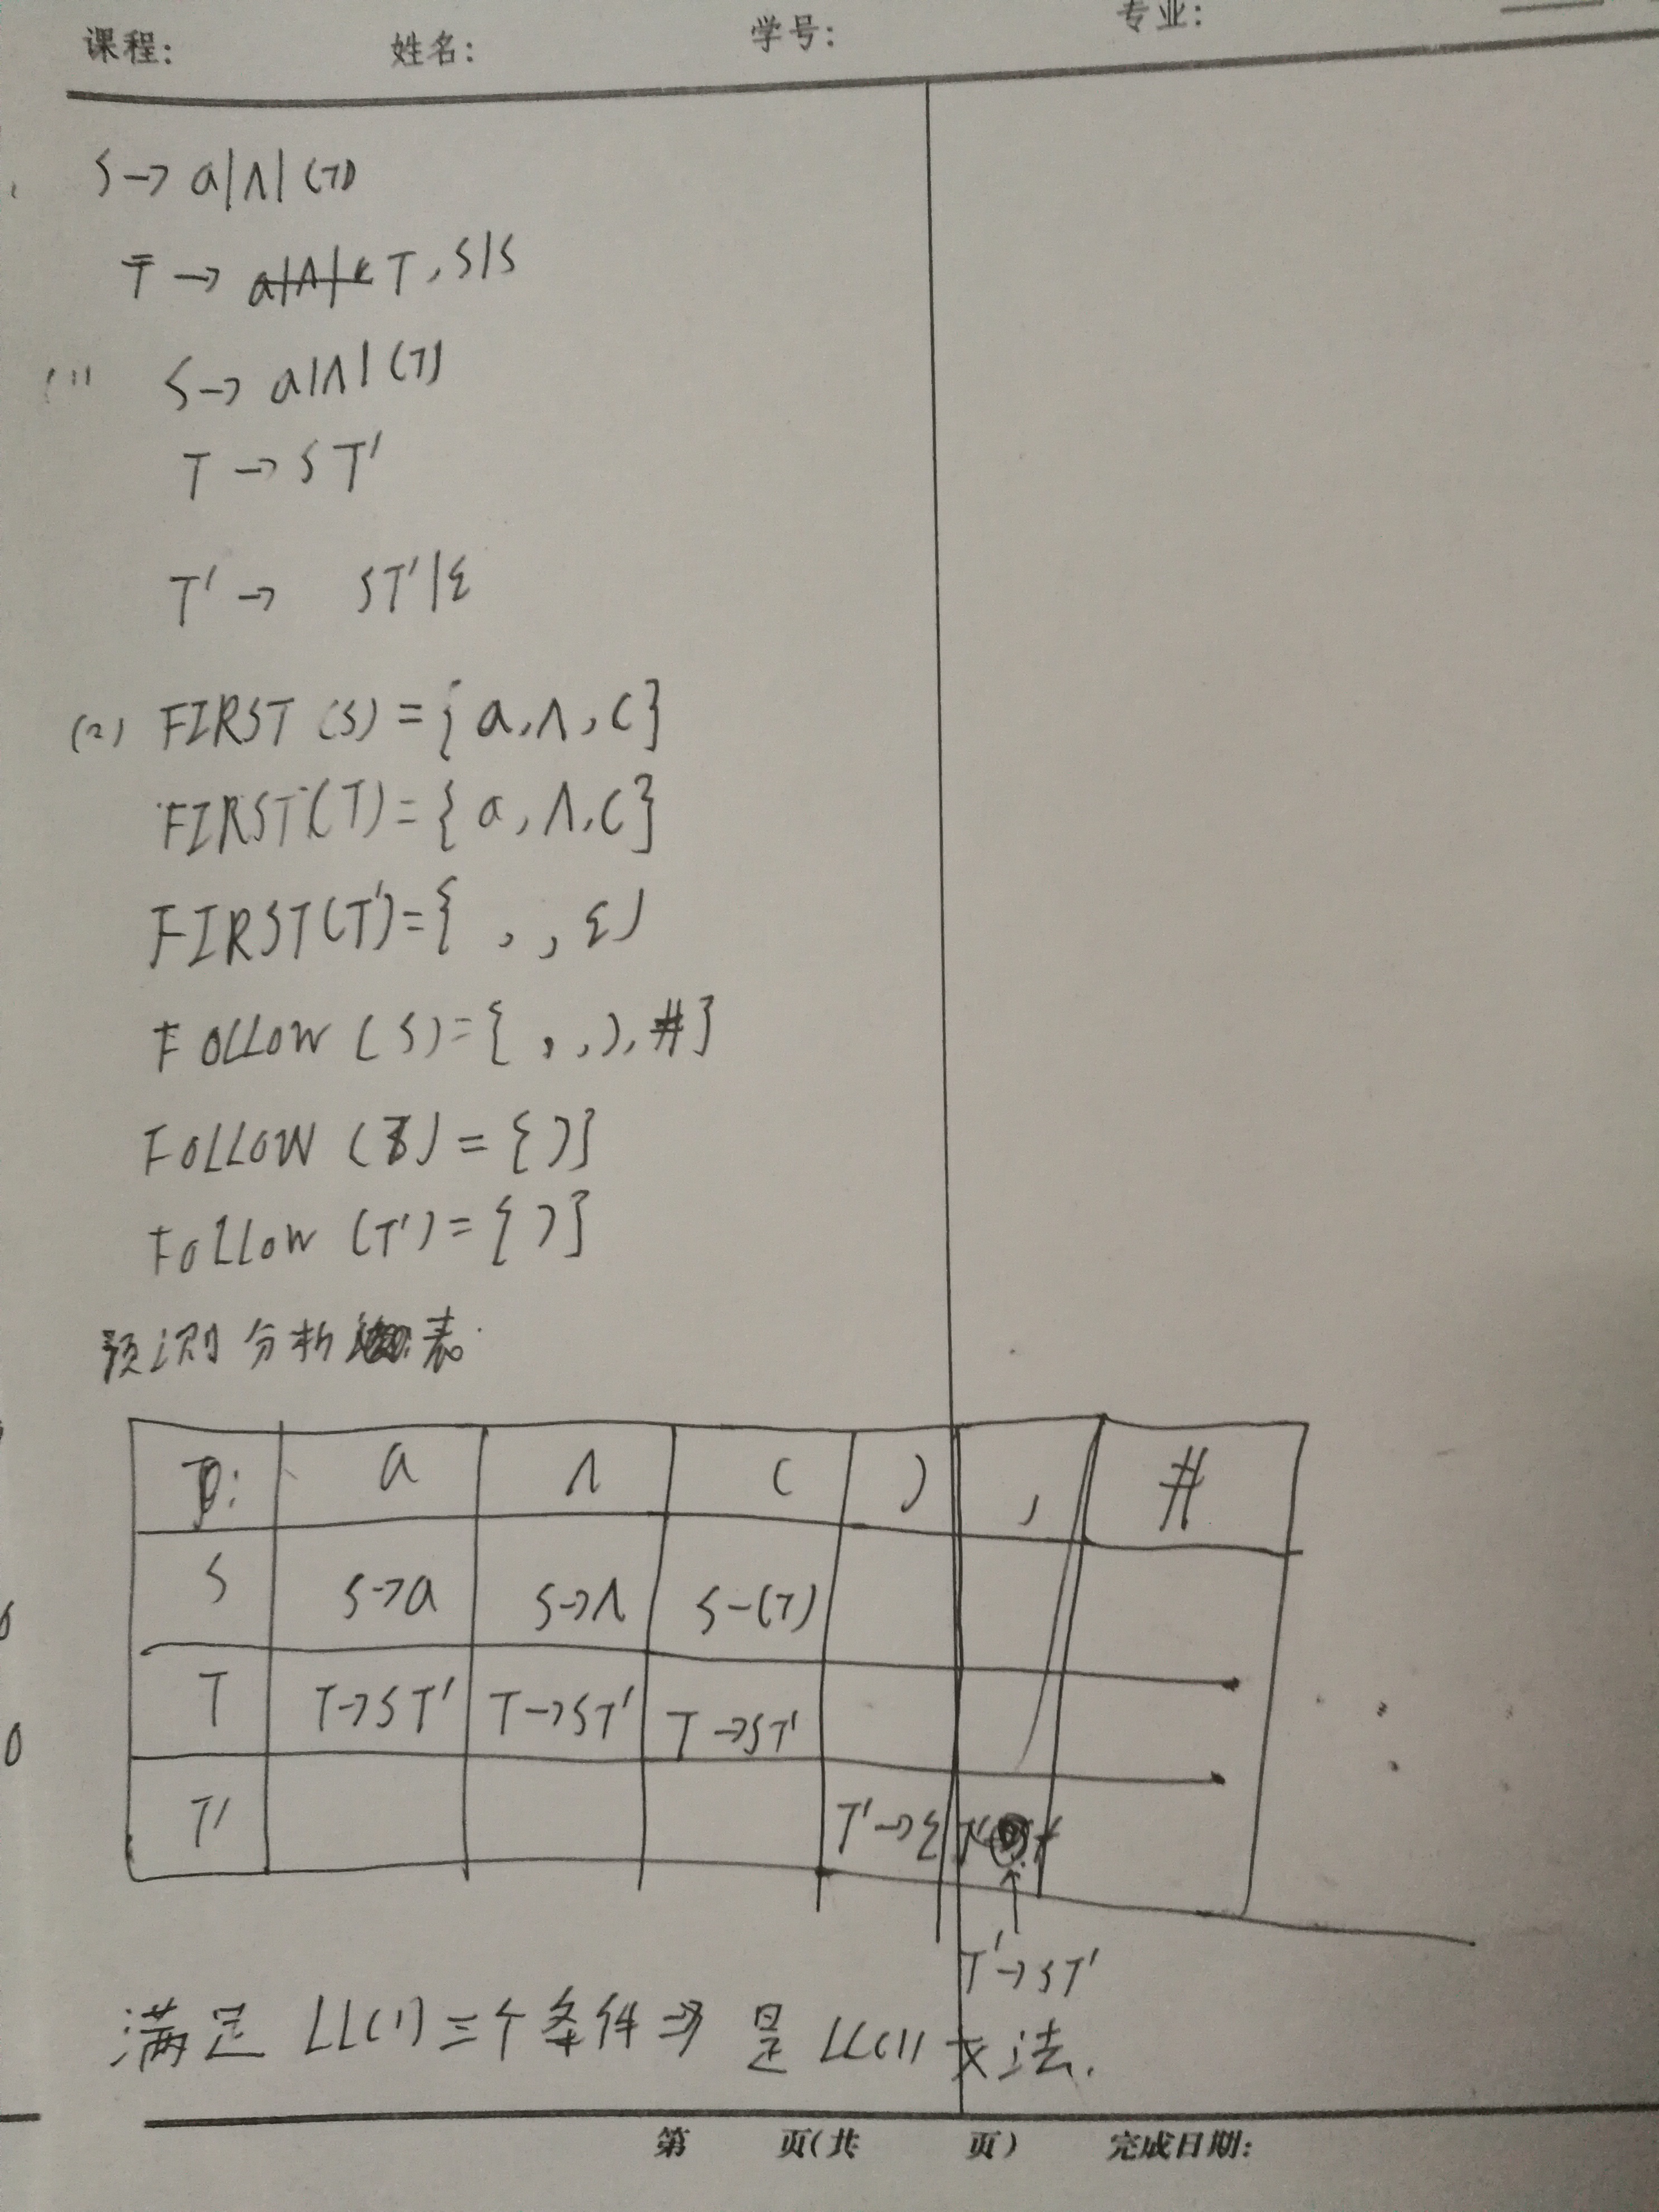 课程: 姓名: 学号: 专业:
S → a|Λ|(T)
T → T,S|S
(1) S → a|Λ|(T)
T → ST'
T' → ST'|ε
(2) FIRST(S)={a,Λ,(}
FIRST(T)={a,Λ,(}
FIRST(T')={ , , ε}
FOLLOW(S)={ , ,),#}
FOLLOW(T)={)}
FOLLOW(T')={)}
预测分析表.
a Λ ( ) , #
S S→a S→Λ S-(T)
T T→ST' T→ST' T→ST'
T' T'→ε
T'→ST'
满足 LL(1)三个条件⇒ 是 LL(1)文法.
第 页(共 页) 完成日期: